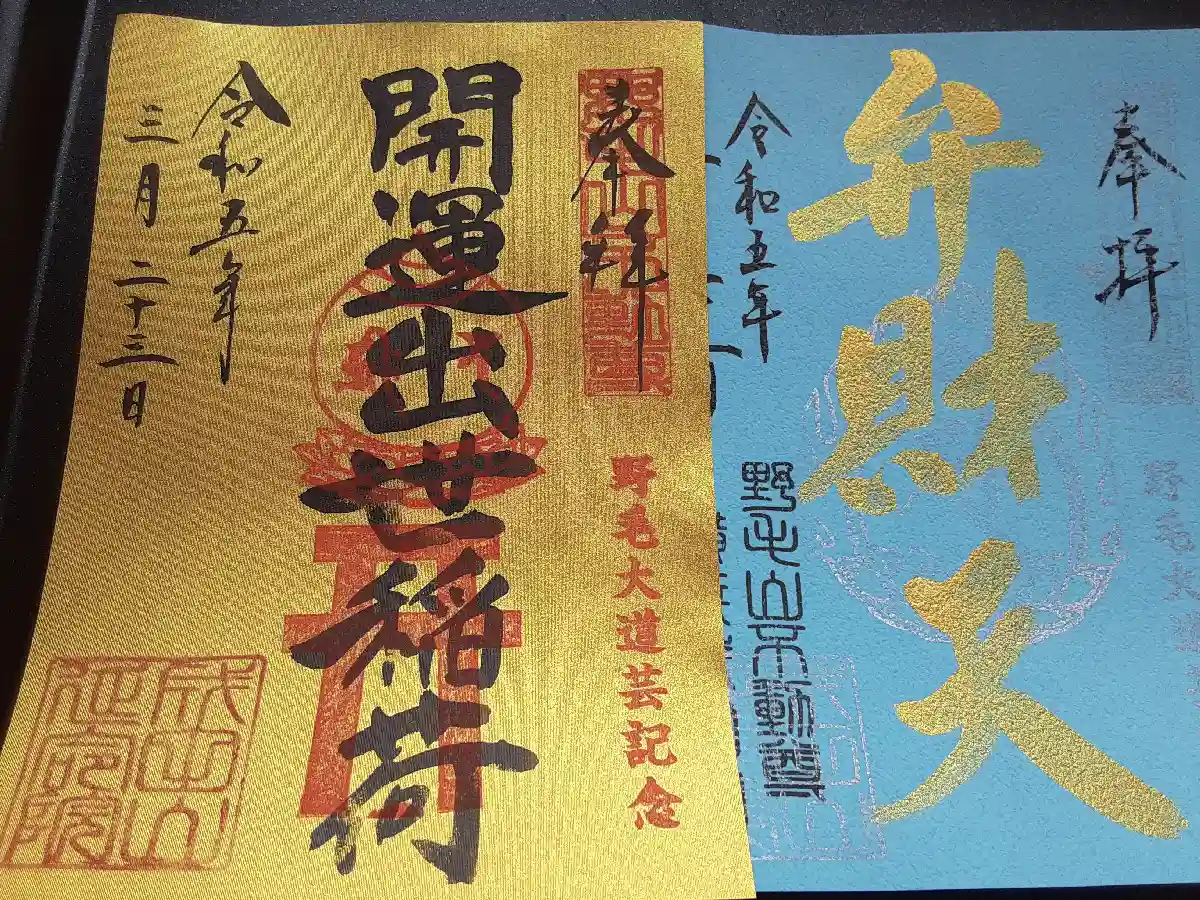 弁財天
奉拝
令和五年
野毛山不動尊
奉拝
野毛大道芸記念
開運出世稲荷
令和五年
三月二十三日
成田山
延命院